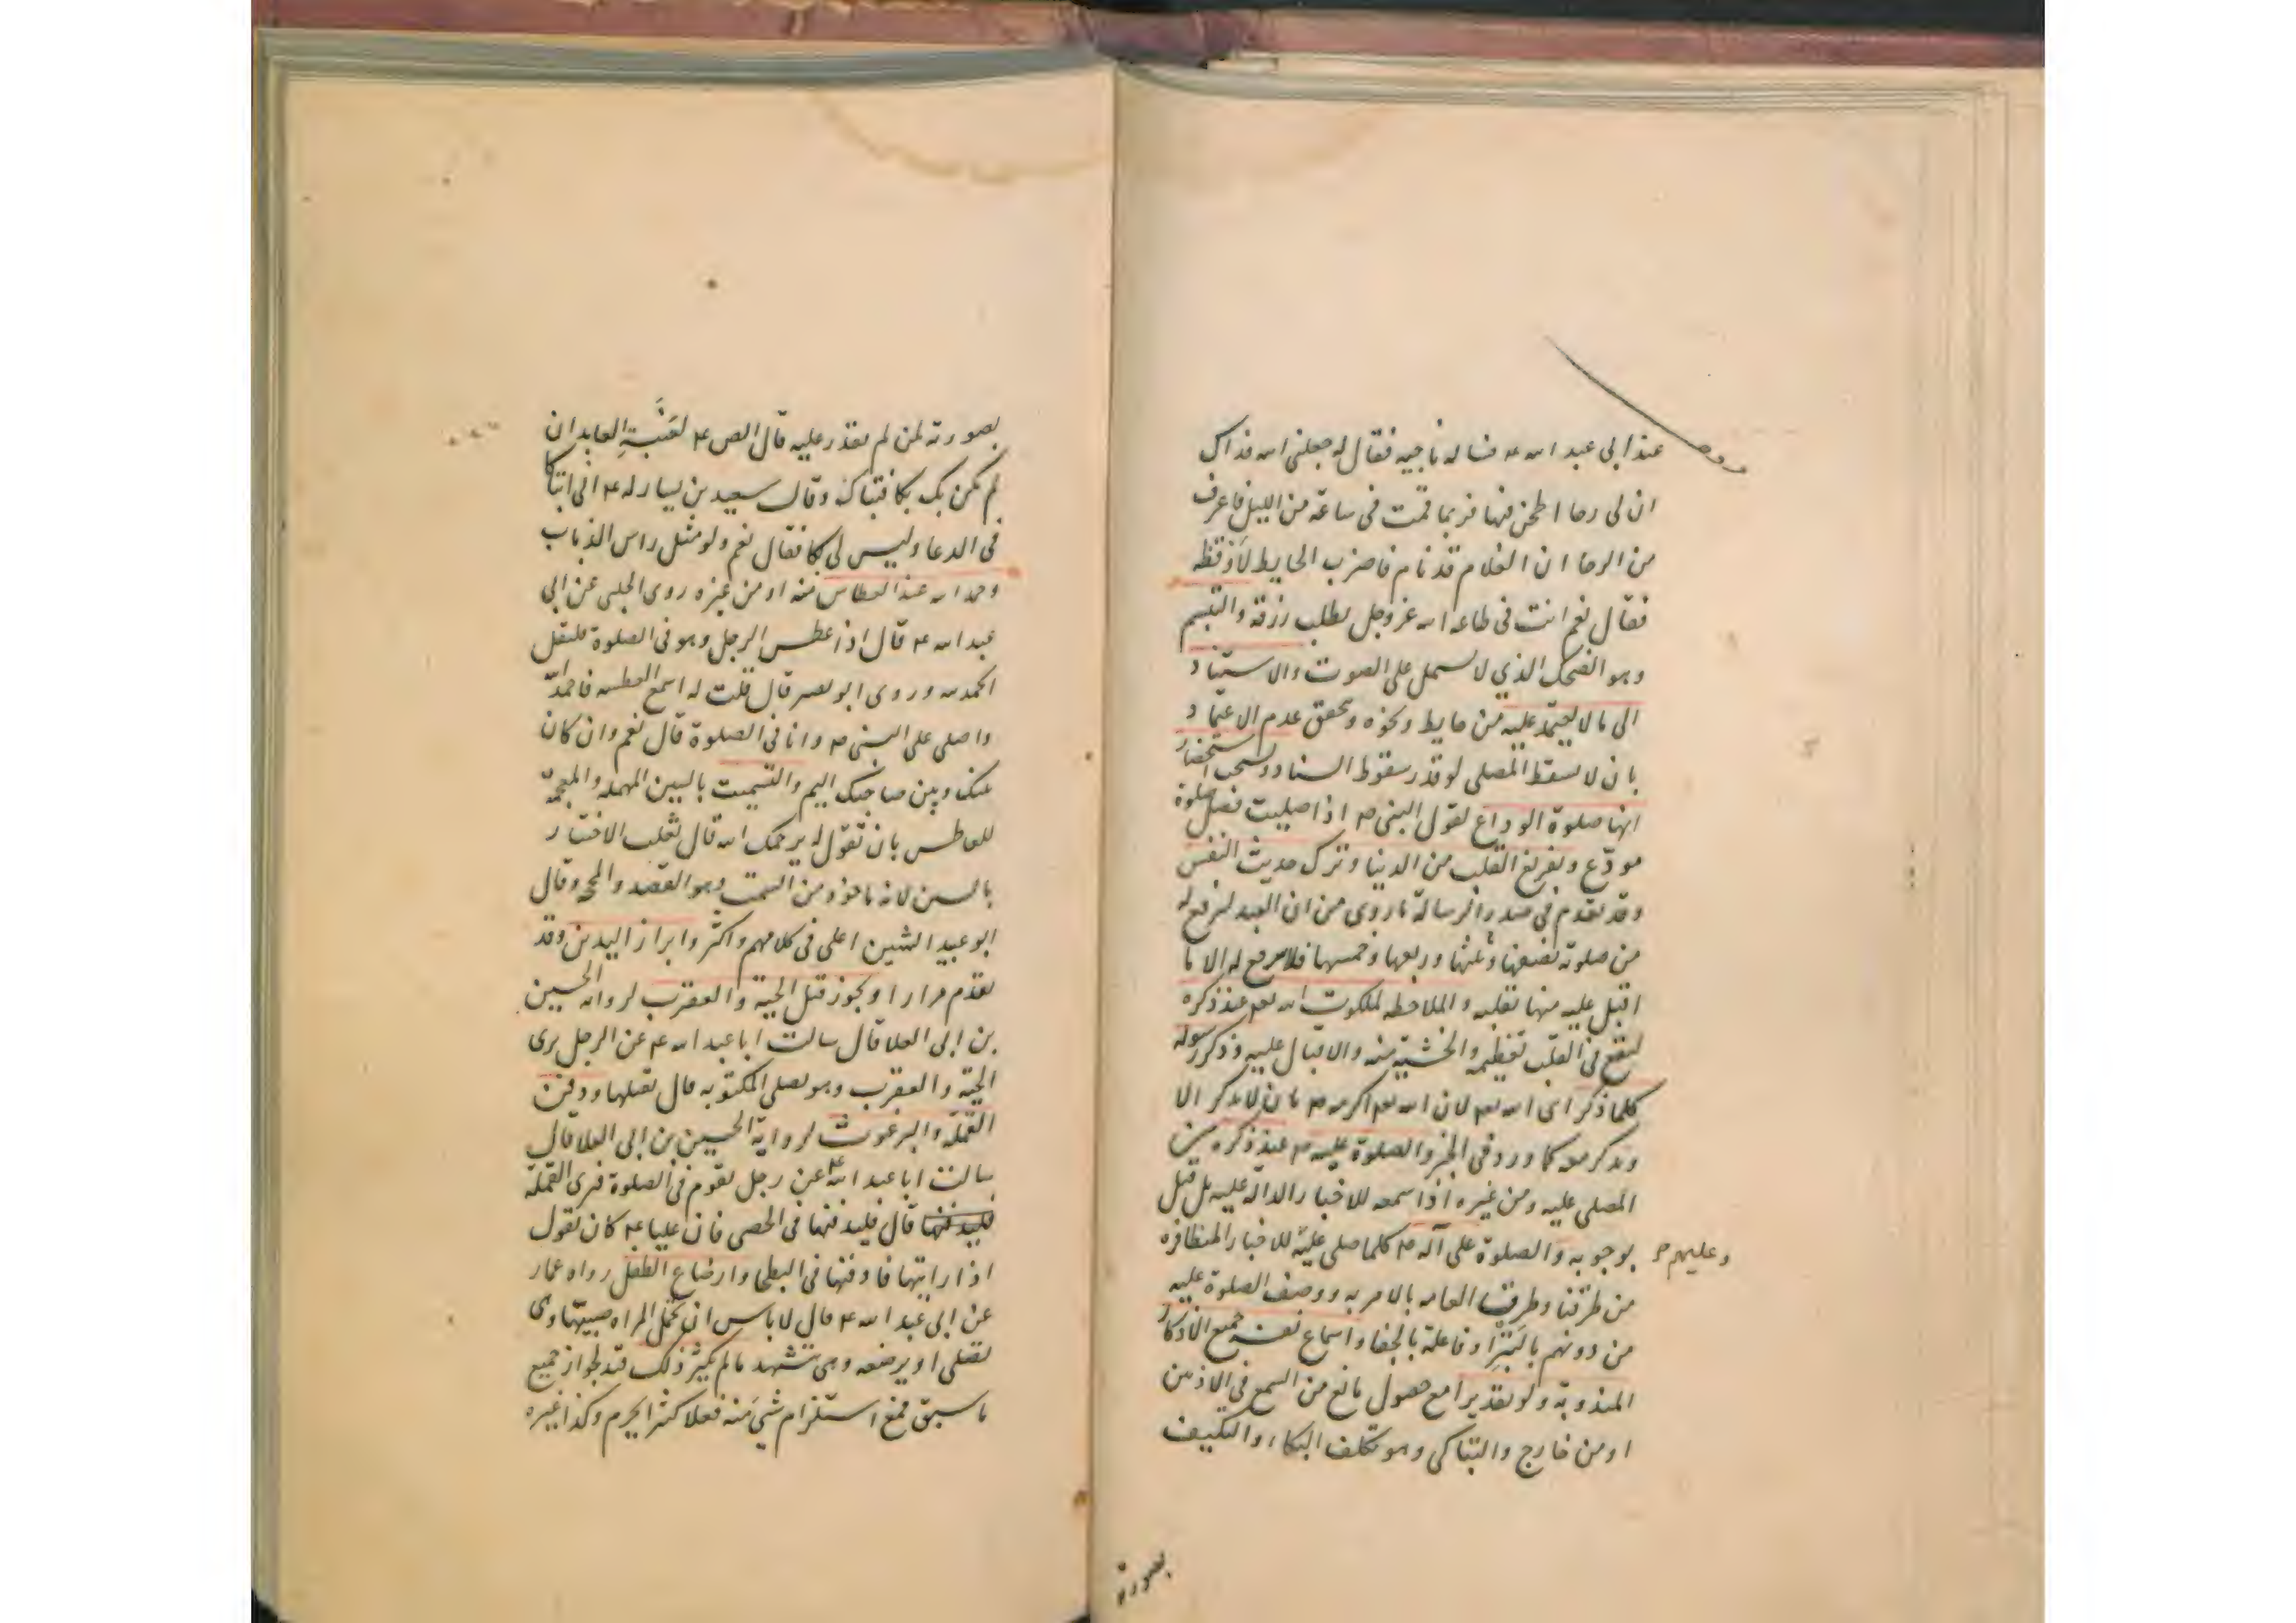 عند ابى عبد الله ع فساله ناجيه فقال له جعلنى الله فداك
ان لى رحا اطحن فيها فربما قمت فى ساعة من الليل فاعرف
من الرحا ان الغلام قد نام فاضرب الحايط لاوقظه
فقال نعم انت فى طاعه الله عز وجل تطلب رزقه والتبسم
وهو الضحك الذي لا يشمل على الصوت والاستناد
الى ما لا يعتمد عليه من حايط ونحوه وتحقق عدم الاعتماد
بان لا يسقط المصلى لو قدر سقوط السناد ويستحب استحضار
انها صلوة الوداع لقول النبى ص اذا صليت فصل صلوة
مودّع وتفريغ القلب من الدنيا وترك حديث النفس
وقد تقدم فى صدر الرسالة ما روى من ان العبد ليرفع له
من صلوته نصفها وثلثها وربعها وخمسها فلا يرفع له الا ما
اقبل عليه منها بقلبه والملاحظه لملكوت الله تعم عند ذكره
ليقع فى القلب تعظيمه والخشية منه والاقبال عليه وذكر رسوله
كلما ذكر اى الله تعم لان الله تعم اكرمه ص بان لا يذكر الا
ويذكر معه كما ورد فى الخبر والصلوة عليه ص عند ذكره من
المصلى عليه ومن غيره اذا سمعه للاخبار الدالة عليه بل قيل
بوجوبه والصلوة على آله ص كلما صلى عليه للاخبار المتظافره
وعليهم
من طرقنا وطرق العامه بالامر به ووصف الصلوة عليه
من دونهم بالبتراء وفاعلة بالجفا واسماع نفسه جميع الاذكار
المندوبة ولو تقديرا مع حصول مانع من السمع فى الاذنين
او من خارج والتباكى وهو تكلف البكاء والتكيف
بصورة
بصورته لمن لم يقدر عليه قال الص ع لعنبسة العابد ان
لم يكن بك بكا فتباك وقال سعيد بن يسار له ع انى اتباكا
فى الدعا وليس لى بكا فقال نعم ولو مثل راس الذباب
وحمد الله عند العطاس منه او من غيره روى الحلبى عن ابى
عبد الله ع قال اذا عطس الرجل وهو فى الصلوة فليقل
الحمد لله وروى ابو بصير قال قلت له اسمع العطسه فاحمد الله
واصلى على النبى ص وانا فى الصلوة قال نعم وان كان
بينك وبين صاحبك اليم والتسميت بالسين المهمله والمعجمة
للعاطس بان تقول له يرحمك الله قال ثعلب الاختيار
بالسين لانه ماخوذ من السمت وهو القصد والمحجة وقال
ابو عبيد الشين اعلى فى كلامهم واكثر وابراز اليدين وقد
تقدم مرارا ويجوز قتل الحية والعقرب لروايه الحسين
بن ابى العلا قال سالت ابا عبد الله ع عن الرجل يرى
الحية والعقرب وهو يصلى المكتوبه قال يقتلها ودفن
القملة والبرغوث لرواية الحسين بن ابى العلا قال
سالت ابا عبد الله ع عن رجل يقوم فى الصلوة فيرى القملة
فليدفنها قال فليدفنها فى الحصى فان عليا ع كان يقول
اذا رايتها فادفنها فى البطحا وارضاع الطفل رواه عمار
عن ابى عبد الله ع قال لا باس ان تحمل المراه صبيتها وهى
تصلى او يرضعه وهى تشهد ما لم يكثر ذلك قيد لجواز جميع
ما سبق فمع استلزام شئ منه فعلا كثيرا يحرم وكذا غيره